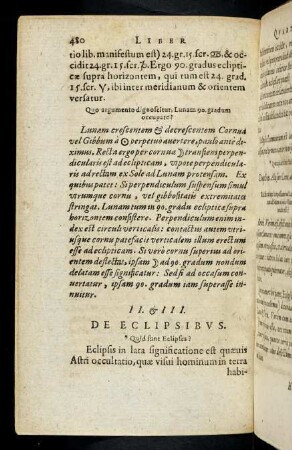 480 LIBER
tio lib. manifestum est) 24. gr. 15. scr. ♎. & oc-
cidit 24. gr. 15. scr. ♑. Ergo 90. gradus eclipti-
cæ supra horizontem, qui tum est 24. grad.
15. scr. ♈, ibi inter meridianum & orientem
versatur.
Quo argumento dignoscitur, Lunam 90. gradum
occupare?
Lunam crescentem & decrescentem Cornua
vel Gibbum à ☉ perpetuò auertere, paulò antè di-
ximus. Recta ergo per cornua ☽ transiens perpen-
dicularis est ad eclipticam, vtpote perpendicula-
ris ad rectam ex Sole ad Lunam protensam. Ex
quibus patet: Si perpendiculum suspensum simul
vtrumque cornu, vel gibbositatis extremitates
stringat. Lunam tum 90. gradu eclipticæ supra
horizontem consistere. Perpendiculum enim in-
dex est circuli verticalis: contactus autem vtri-
usque cornu patefacit verticalem illum erectum
esse ad eclipticam. Si verò cornu superius ad ori-
entem deflectat, ipsam ☽ ad 90. gradum nondum
delatam esse significatur: Sed si ad occasum con-
uertatur, ipsam 90. gradum iam superasse in-
nuitur.
II. & III.
DE ECLIPSIBVS.
Quid sunt Eclipses?
Eclipsis in lata significatione est quæuis
Astri occultatio, quæ visui hominum in terra
habi-